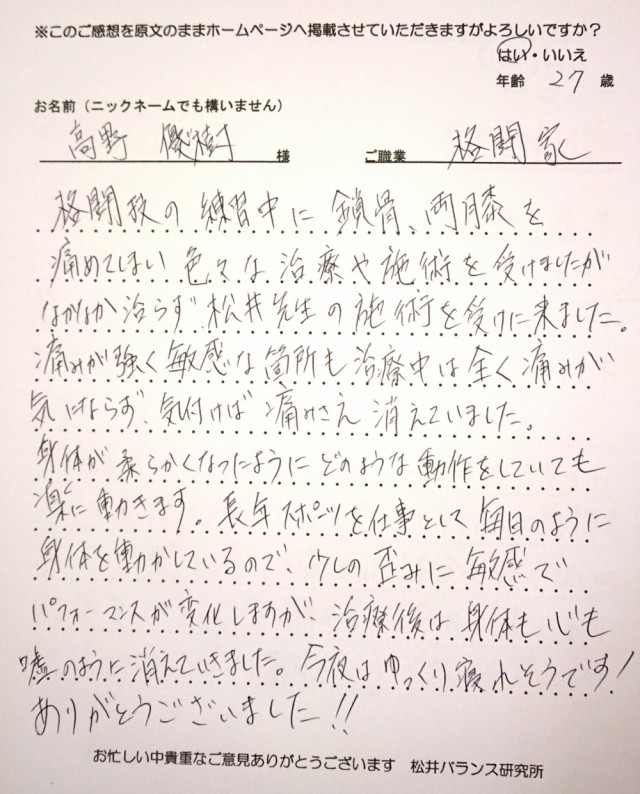 ※このご感想を原文のままホームページへ掲載させていただきますがよろしいですか？
はい・いいえ
年齢 27 歳
お名前（ニックネームでも構いません）
高野 優樹 様 ご職業 格闘家
格闘技の練習中に鎖骨、両膝を
痛めてしまい色々な治療や施術を受けましたが
なかなか治らず松井先生の施術を受けに来ました。
痛みが強く敏感な箇所も治療中は全く痛みが
気にならず、気付けば痛みさえ消えていました。
身体が柔らかくなったようにどのような動作をしていても
楽に動きます。長年スポーツを仕事として毎日のように
身体を動かしているので、少しの歪みに敏感で
パフォーマンスが変化しますが、治療後は身体も心も
嘘のように消えていきました。今夜はゆっくり寝れそうです！
ありがとうございました!!
お忙しい中貴重なご意見ありがとうございます 松井バランス研究所